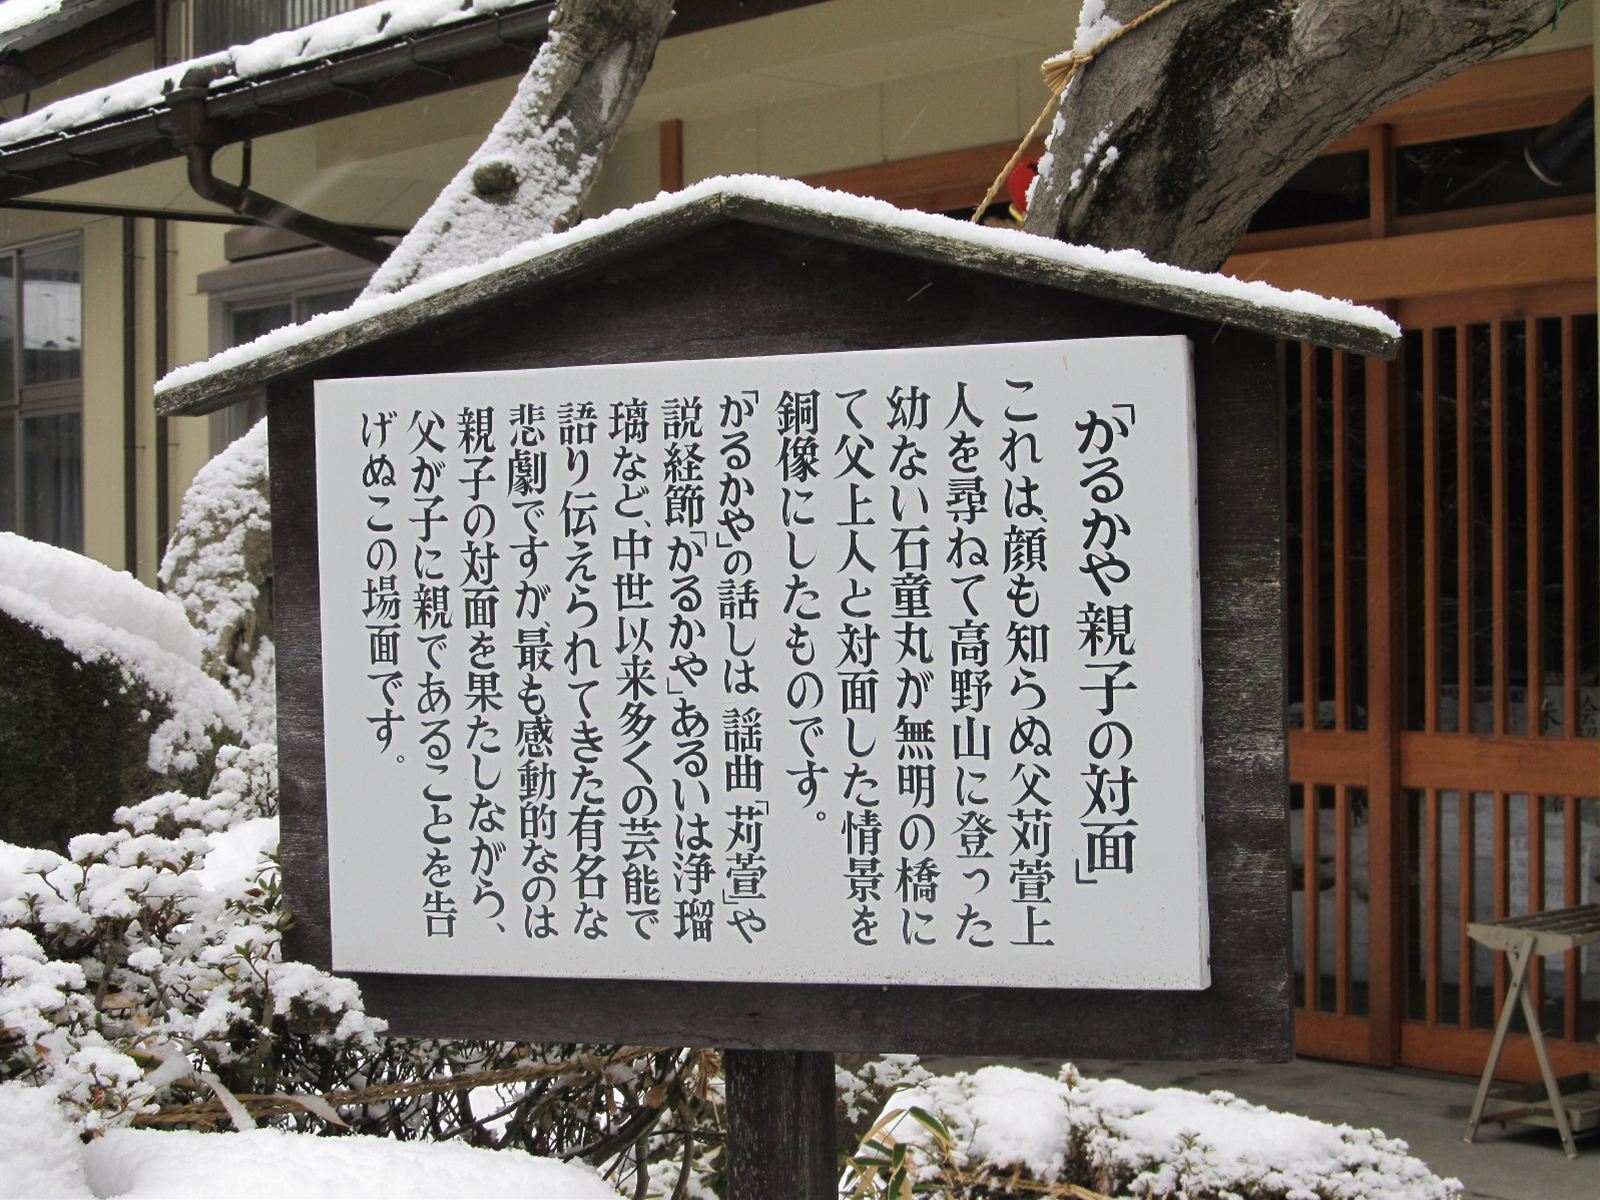 「かるかや親子の対面」
これは、顔も知らぬ父苅萱上
人を尋ねて高野山に登った
幼ない石童丸が無明の橋に
て父上人と対面した情景を
銅像にしたものです。
「かるかや」の話しは 謡曲「苅萱」や
説経節「かるかや」あるいは浄瑠
璃など、中世以来多くの芸能で
語り伝えられてきた有名な
悲劇ですが、最も感動的なのは
親子の対面を果たしながら、
父が子に親であることを告
げぬこの場面です。